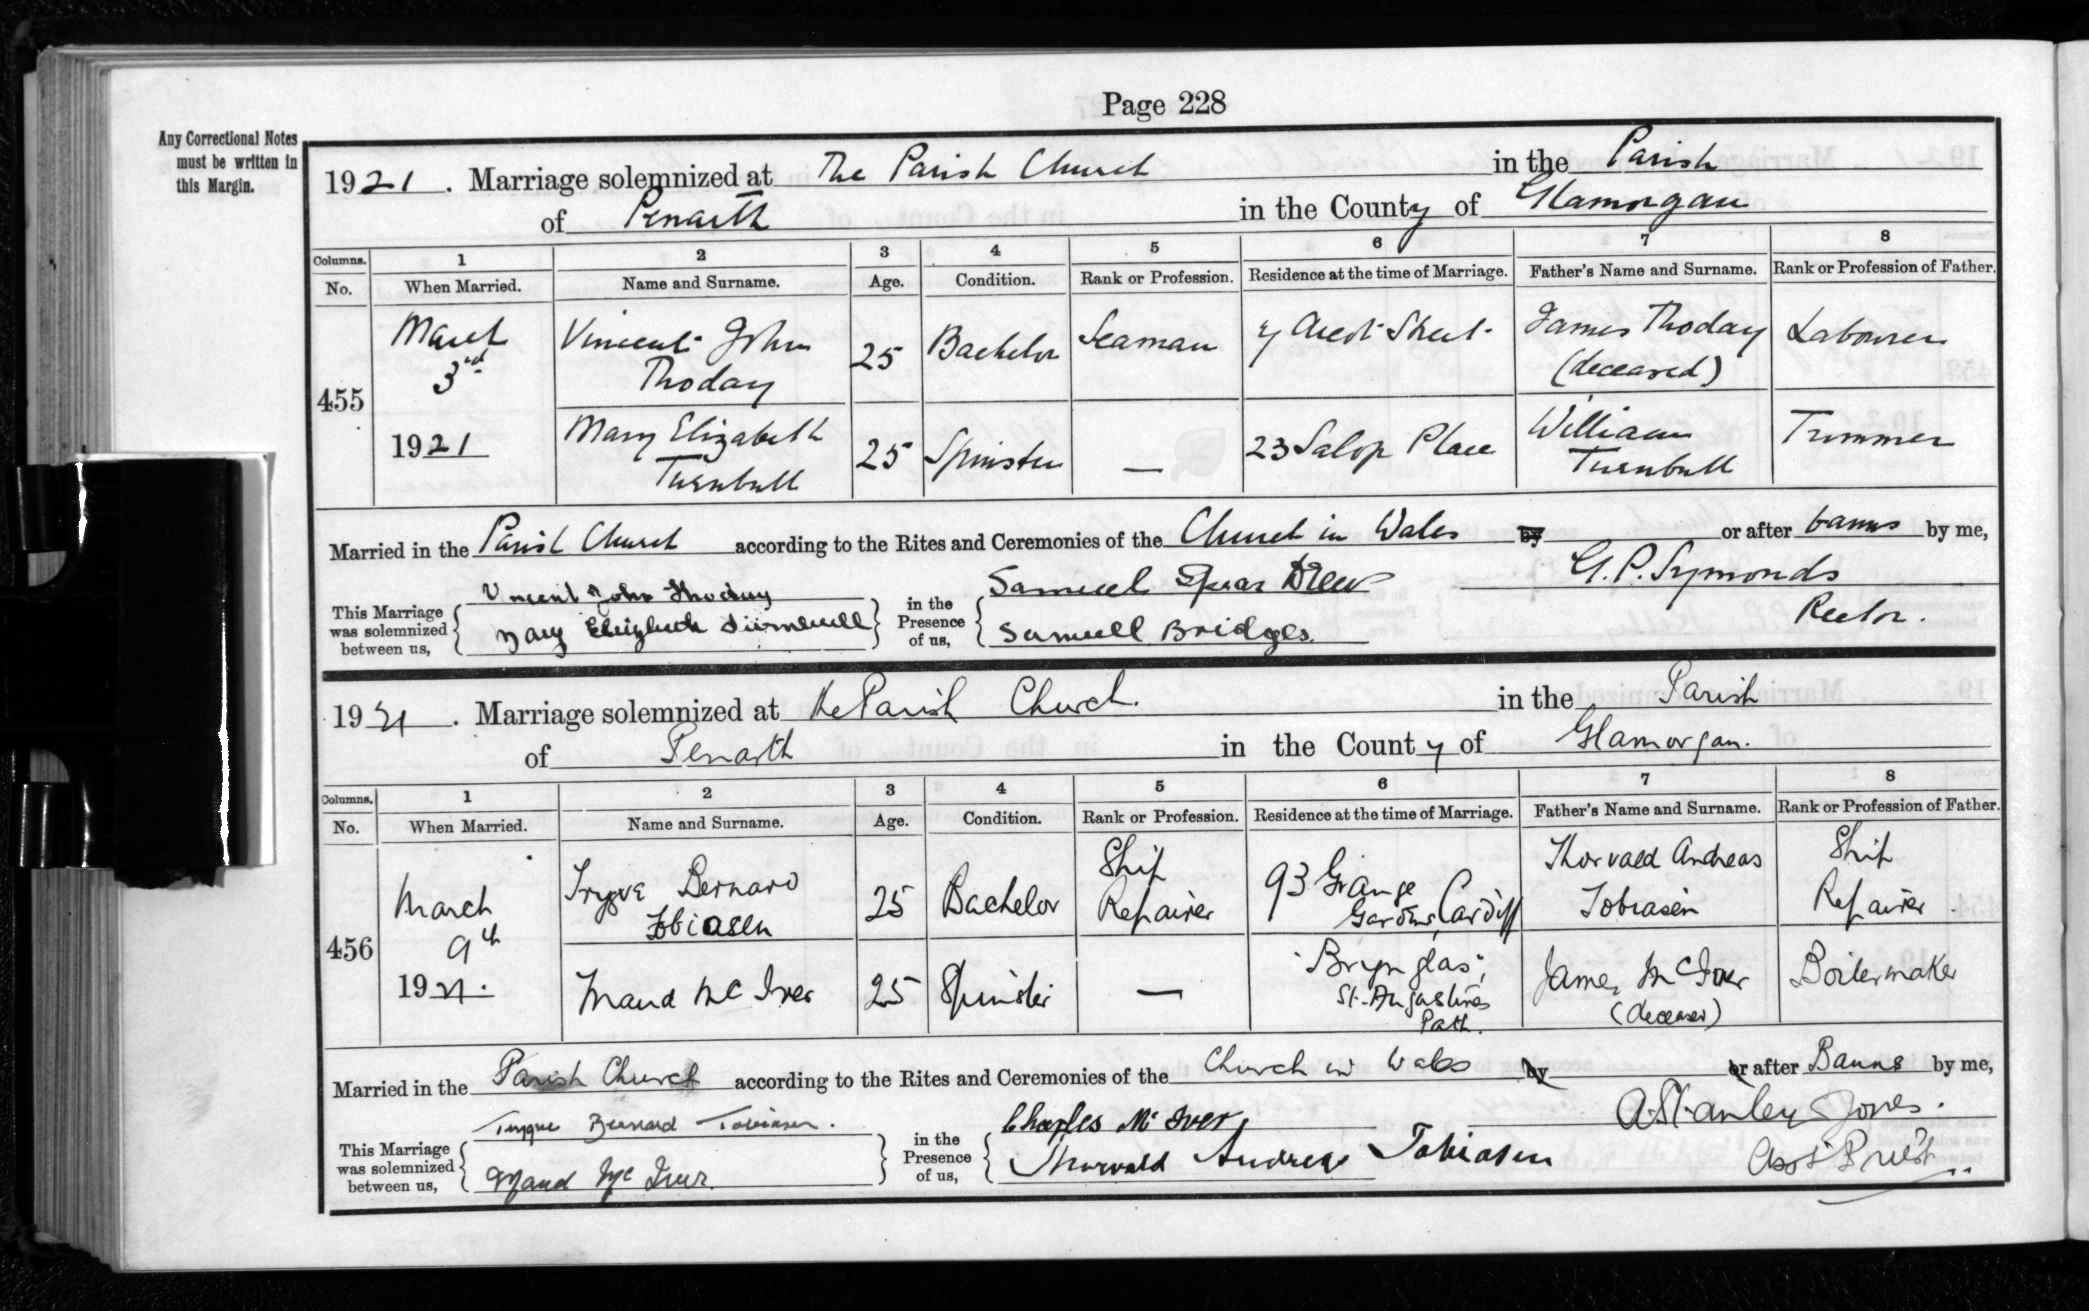 Page 228
Any Correctional Notes
must be written in
this Margin.
1921. Marriage solemnized at The Parish Church in the Parish
of Penarth in the County of Glamorgan
Columns. 1 2 3 4 5 6 7 8
No. When Married. Name and Surname. Age. Condition. Rank or Profession. Residence at the time of Marriage. Father's Name and Surname. Rank or Profession of Father.
455 March 3rd 1921 Vincent John Thoday 25 Bachelor Seaman 7 Arcot Street James Thoday (deceased) Labourer
Mary Elizabeth Turnbull 25 Spinster — 23 Salop Place William Turnbull Trimmer
Married in the Parish Church according to the Rites and Ceremonies of the Church in Wales by or after banns by me,
This Marriage was solemnized between us, Vincent John Thoday in the Presence of us, Samuel Spear Drew G. P. Symonds
Mary Elizabeth Turnbull Samuell Bridges. Rector.
1921. Marriage solemnized at the Parish Church in the Parish
of Penarth in the County of Glamorgan.
Columns. 1 2 3 4 5 6 7 8
No. When Married. Name and Surname. Age. Condition. Rank or Profession. Residence at the time of Marriage. Father's Name and Surname. Rank or Profession of Father.
456 March 9th 1921. Trygve Bernard Tobiasen 25 Bachelor Ship Repairer 93 Grange Gardens, Cardiff Thorvald Andreas Tobiasen Ship Repairer
Maud McIver 25 Spinster — "Brynglas", St. Augustines Path. James McIver (deceased) Boilermaker
Married in the Parish Church according to the Rites and Ceremonies of the Church in Wales by or after Banns by me,
This Marriage was solemnized between us, Trygve Bernard Tobiasen. in the Presence of us, Charles McIver, A. Stanley Jones.
Maud McIver. Thorvald Andreas Tobiasen Asst Priest